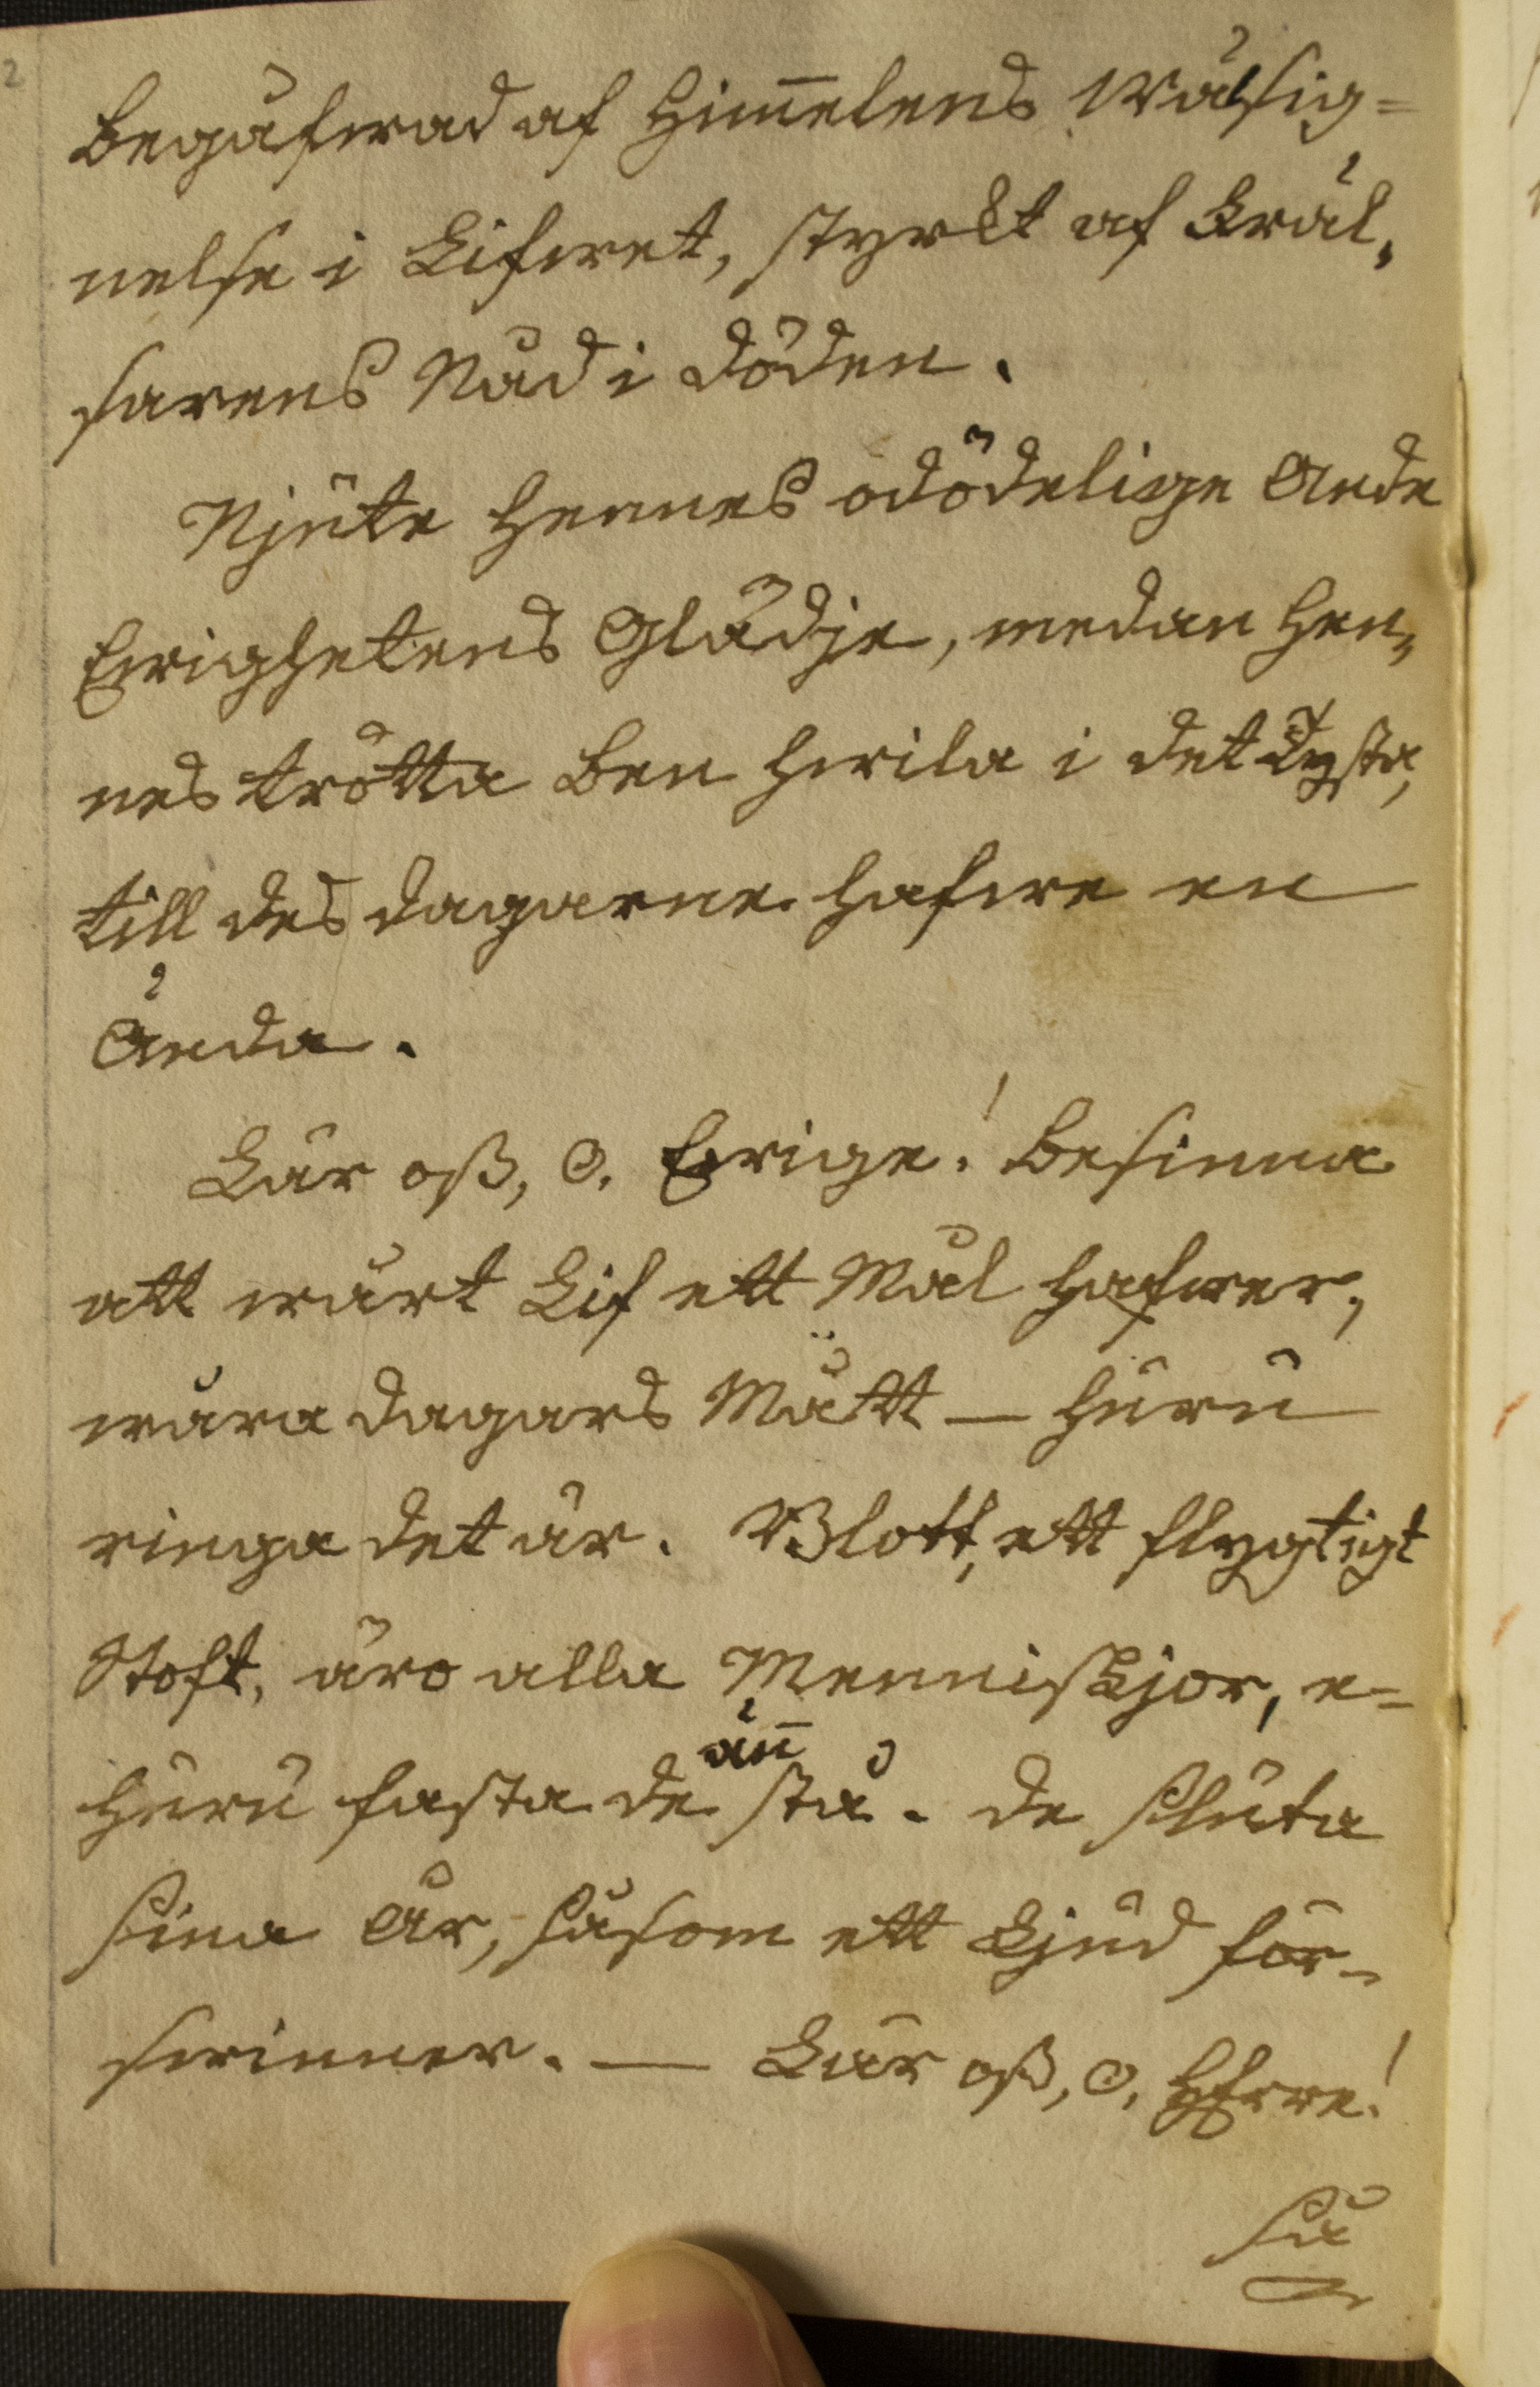 2
begåfwad af Him̅elens Wälsig=
nelse i Lifwet, styrkt af Fräl„
sarens Nåd i döden.
Njute Hennes odödelige Ande
Ewighetens Glädje, medan Hen„
nes trötta Ben hwila i det tysta,
till des dagarne hafwe en
Ända.
Lär oß, O. Ewige! Besinna
att wårt Lif ett Mål hafwer,
wåra dagars Mått — huru
ringa det är. Blott, ett flygtigt
Stoft, äro alla Menniskjor, e=
huru fasta de än̅ stå. de sluta
sina År, såsom ett Ljud för-
swinner. — Lär oß, O. HErre!
Så